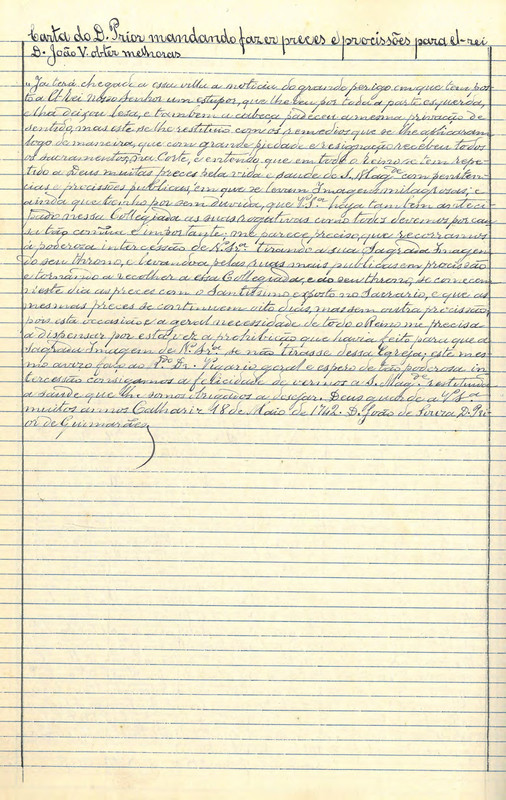 Carta do D. Prior mandando fazer preces e procissões para el-rei
D. João V. obter melhoras
"Já terá chegado a essa villa a noticia do grande perigo em que tem pos-
to a El-Rei Nosso Senhor um estupor, que lhe deu por toda a parte esquerda,
e lha deixou lesa, e tambem a cabeça padeceu a mesma privação de
sentido, mas este se lhe restituiu com os remedios que se lhe applicaram
logo de maneira, que com grande piedade e resignação recebeu todos
os sacramentos; na Corte, e entendo que em todo o reino se tem repe-
tido a Deus muitas preces pela vida e saude de S. Mag.de com peniten-
cias e procissões publicas, em que se levam Imagens milagrosas; e
ainda que tenho por sem duvida, que V.as S.as haja tambem anteci-
pado nessa Collegiada as suas rogativas como todos devemos por cau-
sa tão comua e importante, me parece preciso, que recorramos
á poderosa intercessão de N.a Sr.a tirando a sua Sagrada Imagem
do seu throno, e levando-a pelas ruas mais publicas em procissão
e tornando a recolher a essa Collegiada, e ao seu throno, se comecem
n'este dia as preces com o Santissimo exposto no Sacrario, e que as
mesmas preces se continuem oito dias, mas sem outra procissão,
pois esta occasião e a geral necessidade de todo o Reino me precisa
a dispensar por esta vez a prohibição que havia feito para que a
sagrada Imagem de N.a Sr.a se não tirasse dessa Egreja; este mes-
mo aviso faço ao R.do Dr. Vigario geral e espero de tão poderosa in-
tercessão consigamos a felicidade de vermos a S. Mag.de restituida
a saude que lhe somos obrigados a desejar. Deus guarde a V.as S.as
muitos annos Calhariz 18 de Maio de 1742. D. João de Souza D. Pri-
or de Guimarães